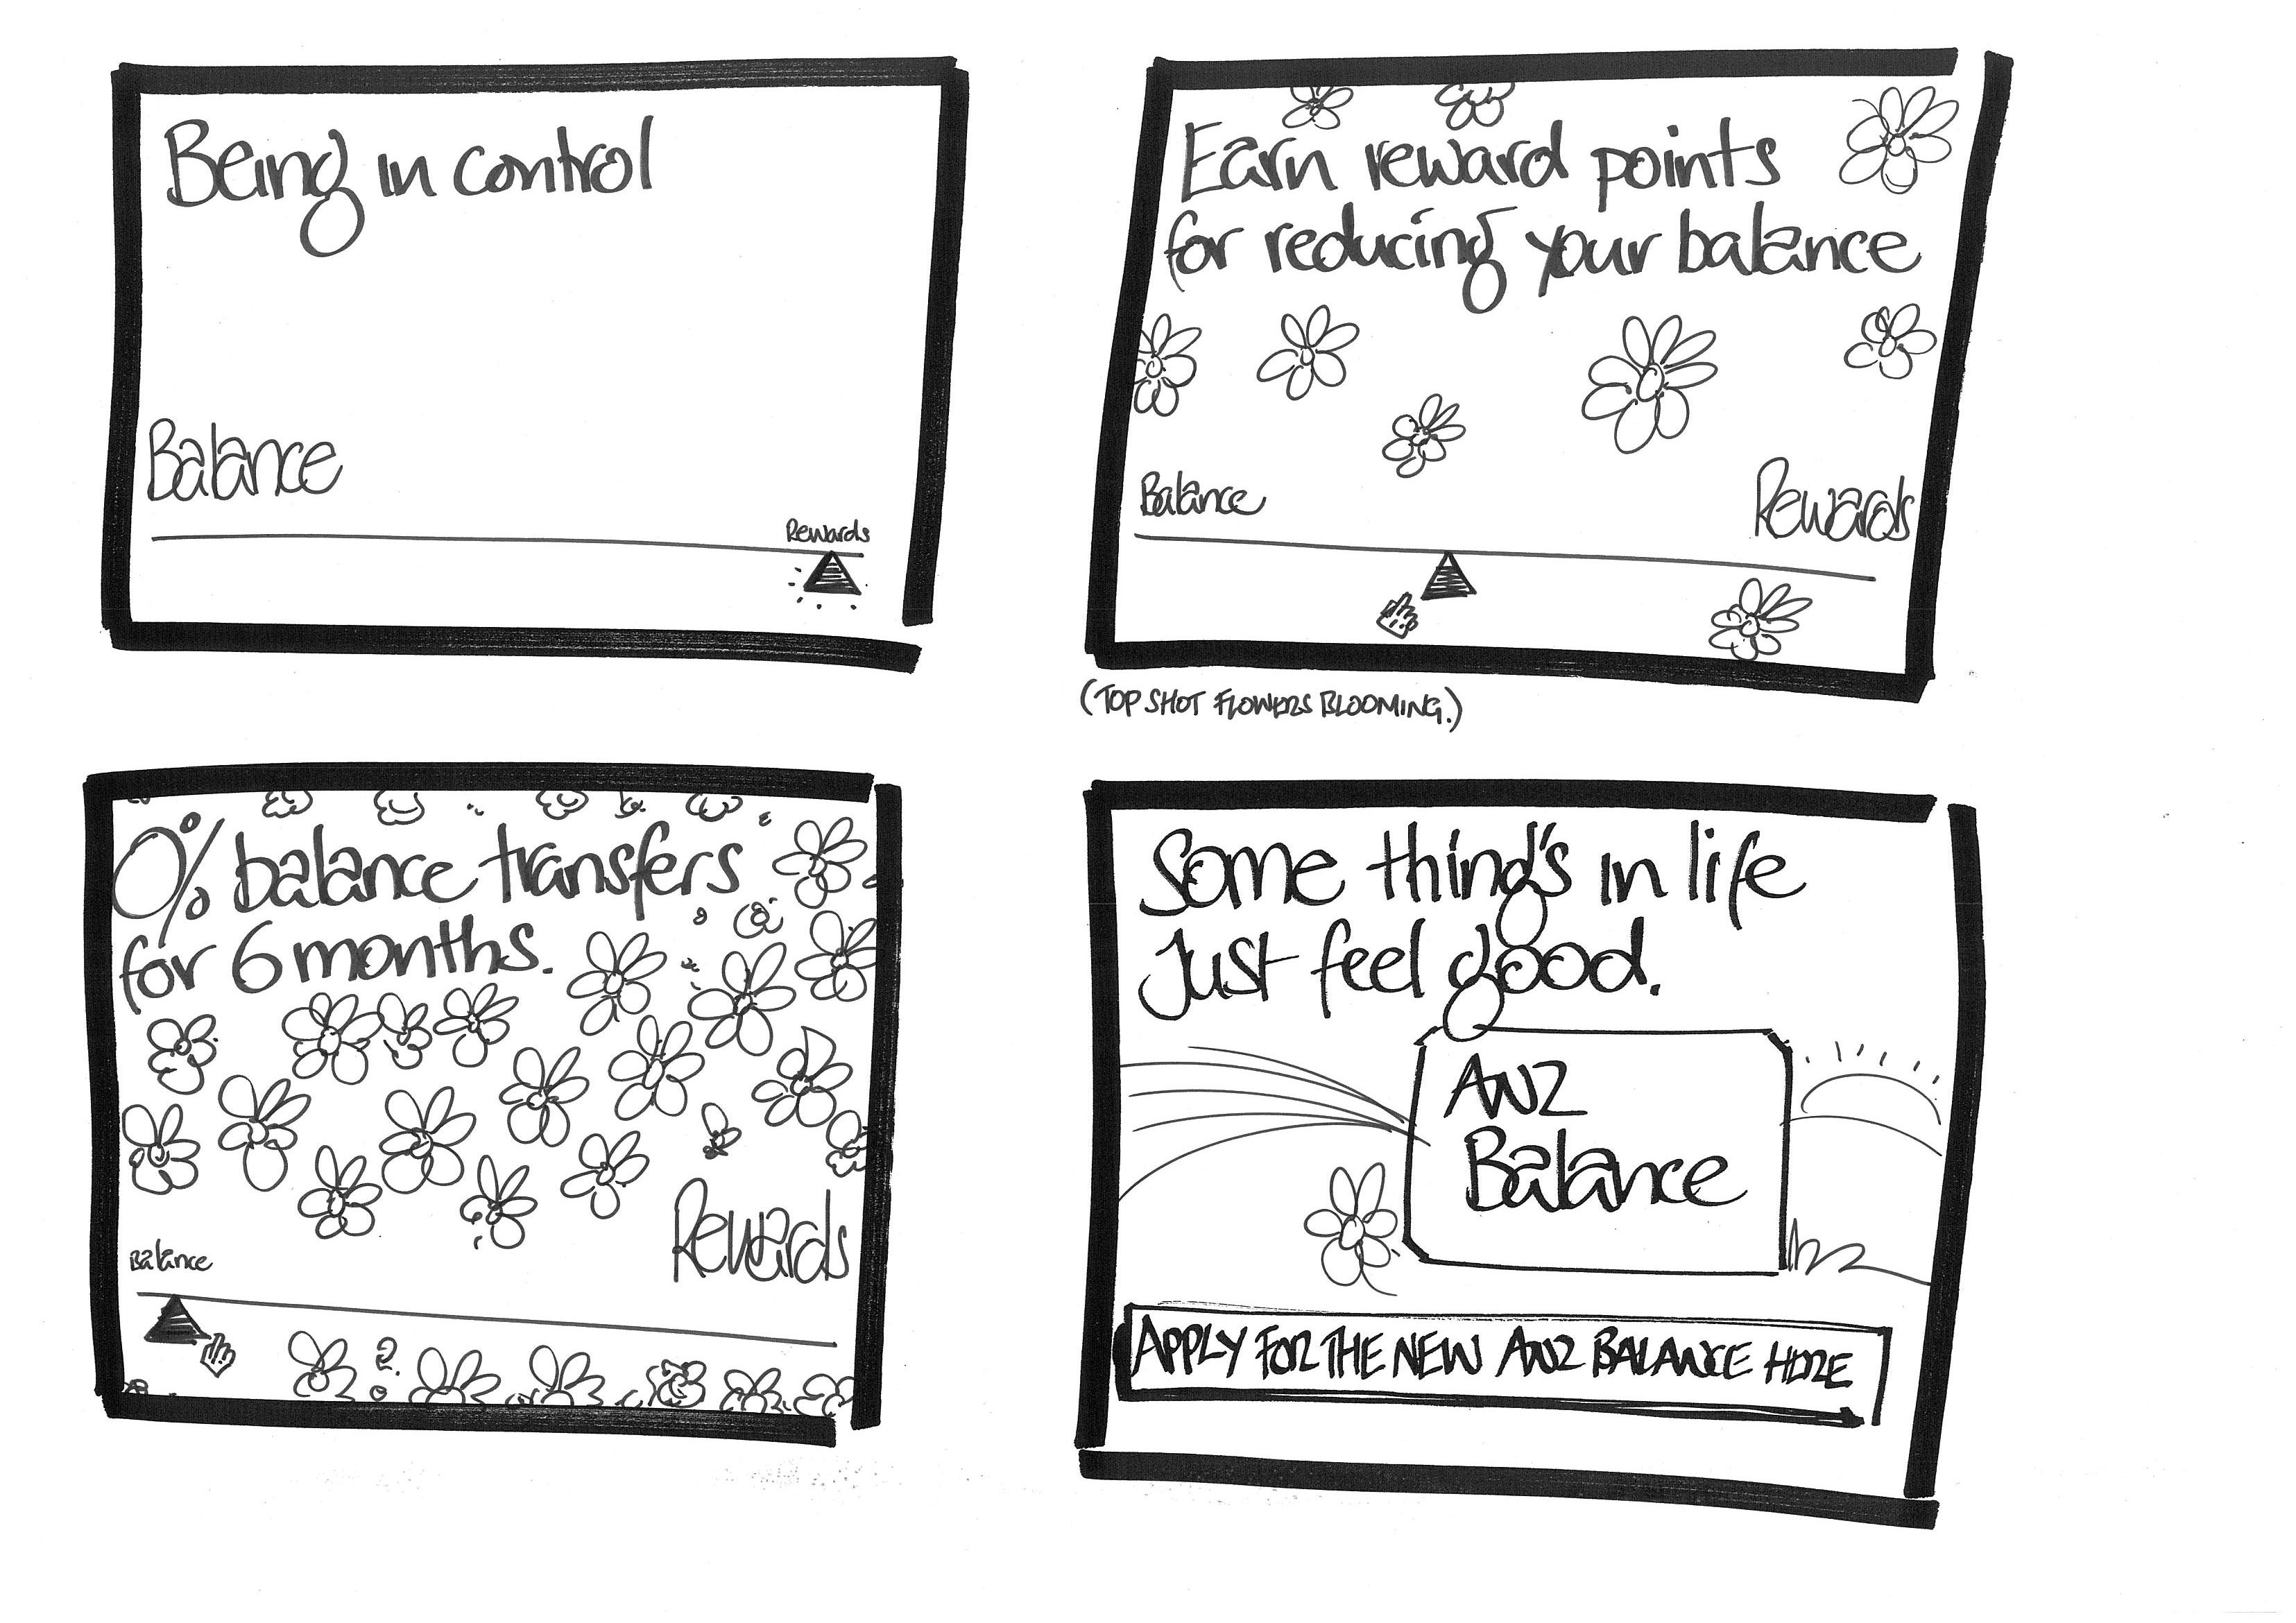 Being in control
Balance
Rewards
Earn reward points
for reducing your balance
Balance
Rewards
(TOP SHOT FLOWERS BLOOMING.)
0% balance transfers
for 6 months.
Balance
Rewards
Some thing's in life
Just feel good.
ANZ
Balance
APPLY FOR THE NEW ANZ BALANCE HERE